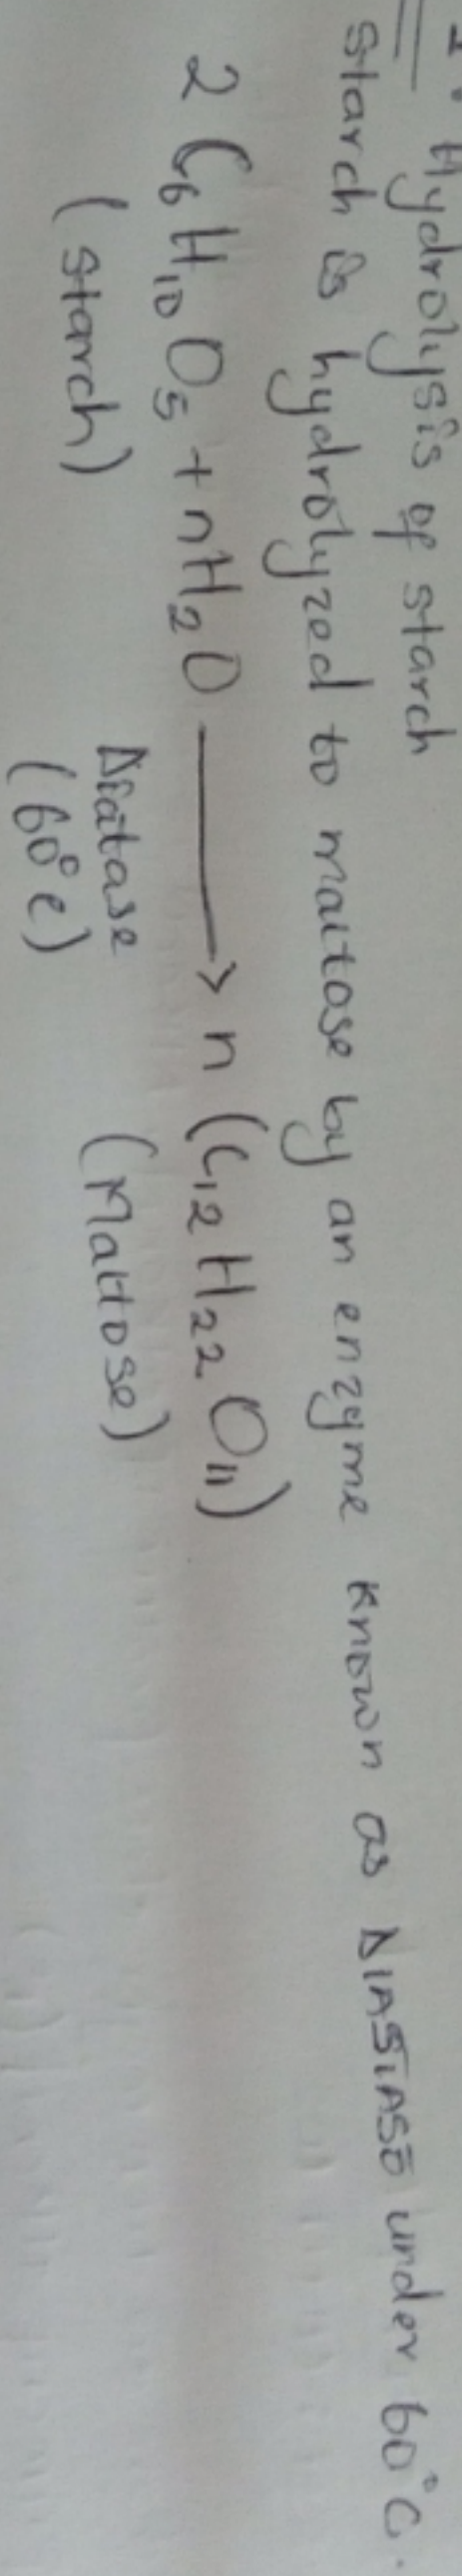 1. Hydrolysis of starch
starch is hydrolyzed to maltose by an enzyme known as DIASTASE under 60°C.
2 C₆H₁₀O₅ + nH₂O ⟶ n (C₁₂H₂₂O₁₁)
(starch) Diatase (Maltose)
(60°c)